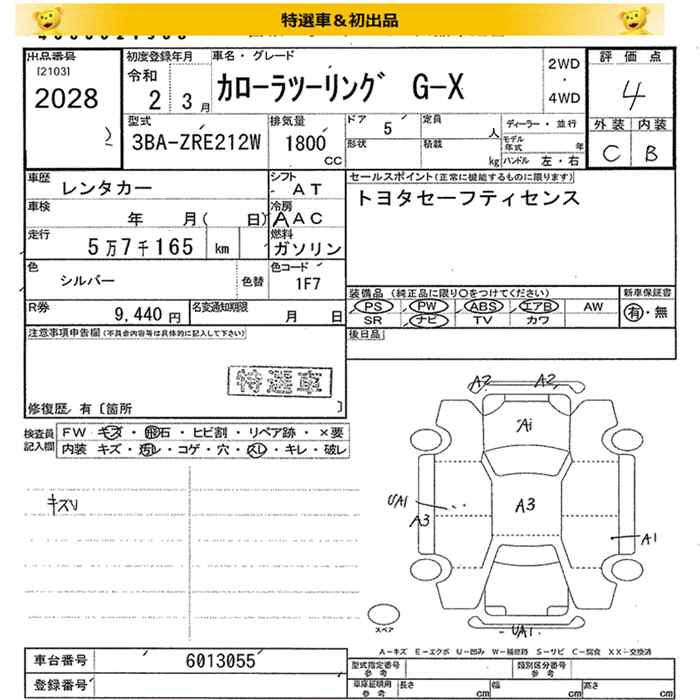 特選車&初出品
出品番号
[2103]
2028
初度登録年月
令和
2 3月
車名・グレード
カローラツーリング G-X
2WD
・
4WD
評価点
4
外装 内装
C B
型式
3BA-ZRE212W
排気量
1800
CC
ドア
5
形状
定員
人
積載
kg
ディーラー・並行
モデル年式
年
ハンドル 左・右
車歴
レンタカー
シフト
AT
車検
年 月( 日)
冷房
AAC
走行
5万7千165 km
燃料
ガソリン
色
シルバー
色替
色コード
1F7
R券
9,440円
名変通知期限
月 日
セールスポイント(正常に機能するものに限ります)
トヨタセーフティセンス
装備品(純正品に限り○をつけてください)
PS PW ABS エアB AW
SR ナビ TV カワ
新車保証書
有・無
後日品
注意事項申告欄(不具合内容等は具体的に記入して下さい)
特選車
修復歴 有〔箇所 〕
検査員
記入欄
FW キズ・飛石・ヒビ割・リペア跡・×要
内装 キズ・汚レ・コゲ・穴・スレ・キレ・破レ
キズU
A2 A2
A1
UA1
A3
A3
A1
UA1
スペア
A-キズ E-エクボ U-凹み W-補修跡 S-サビ C-腐食 XX-交換済
車台番号
6013055
登録番号
型式指定番号
参考
類別区分番号
参考
車庫証明用
参考
長さ cm
幅 cm
高さ cm